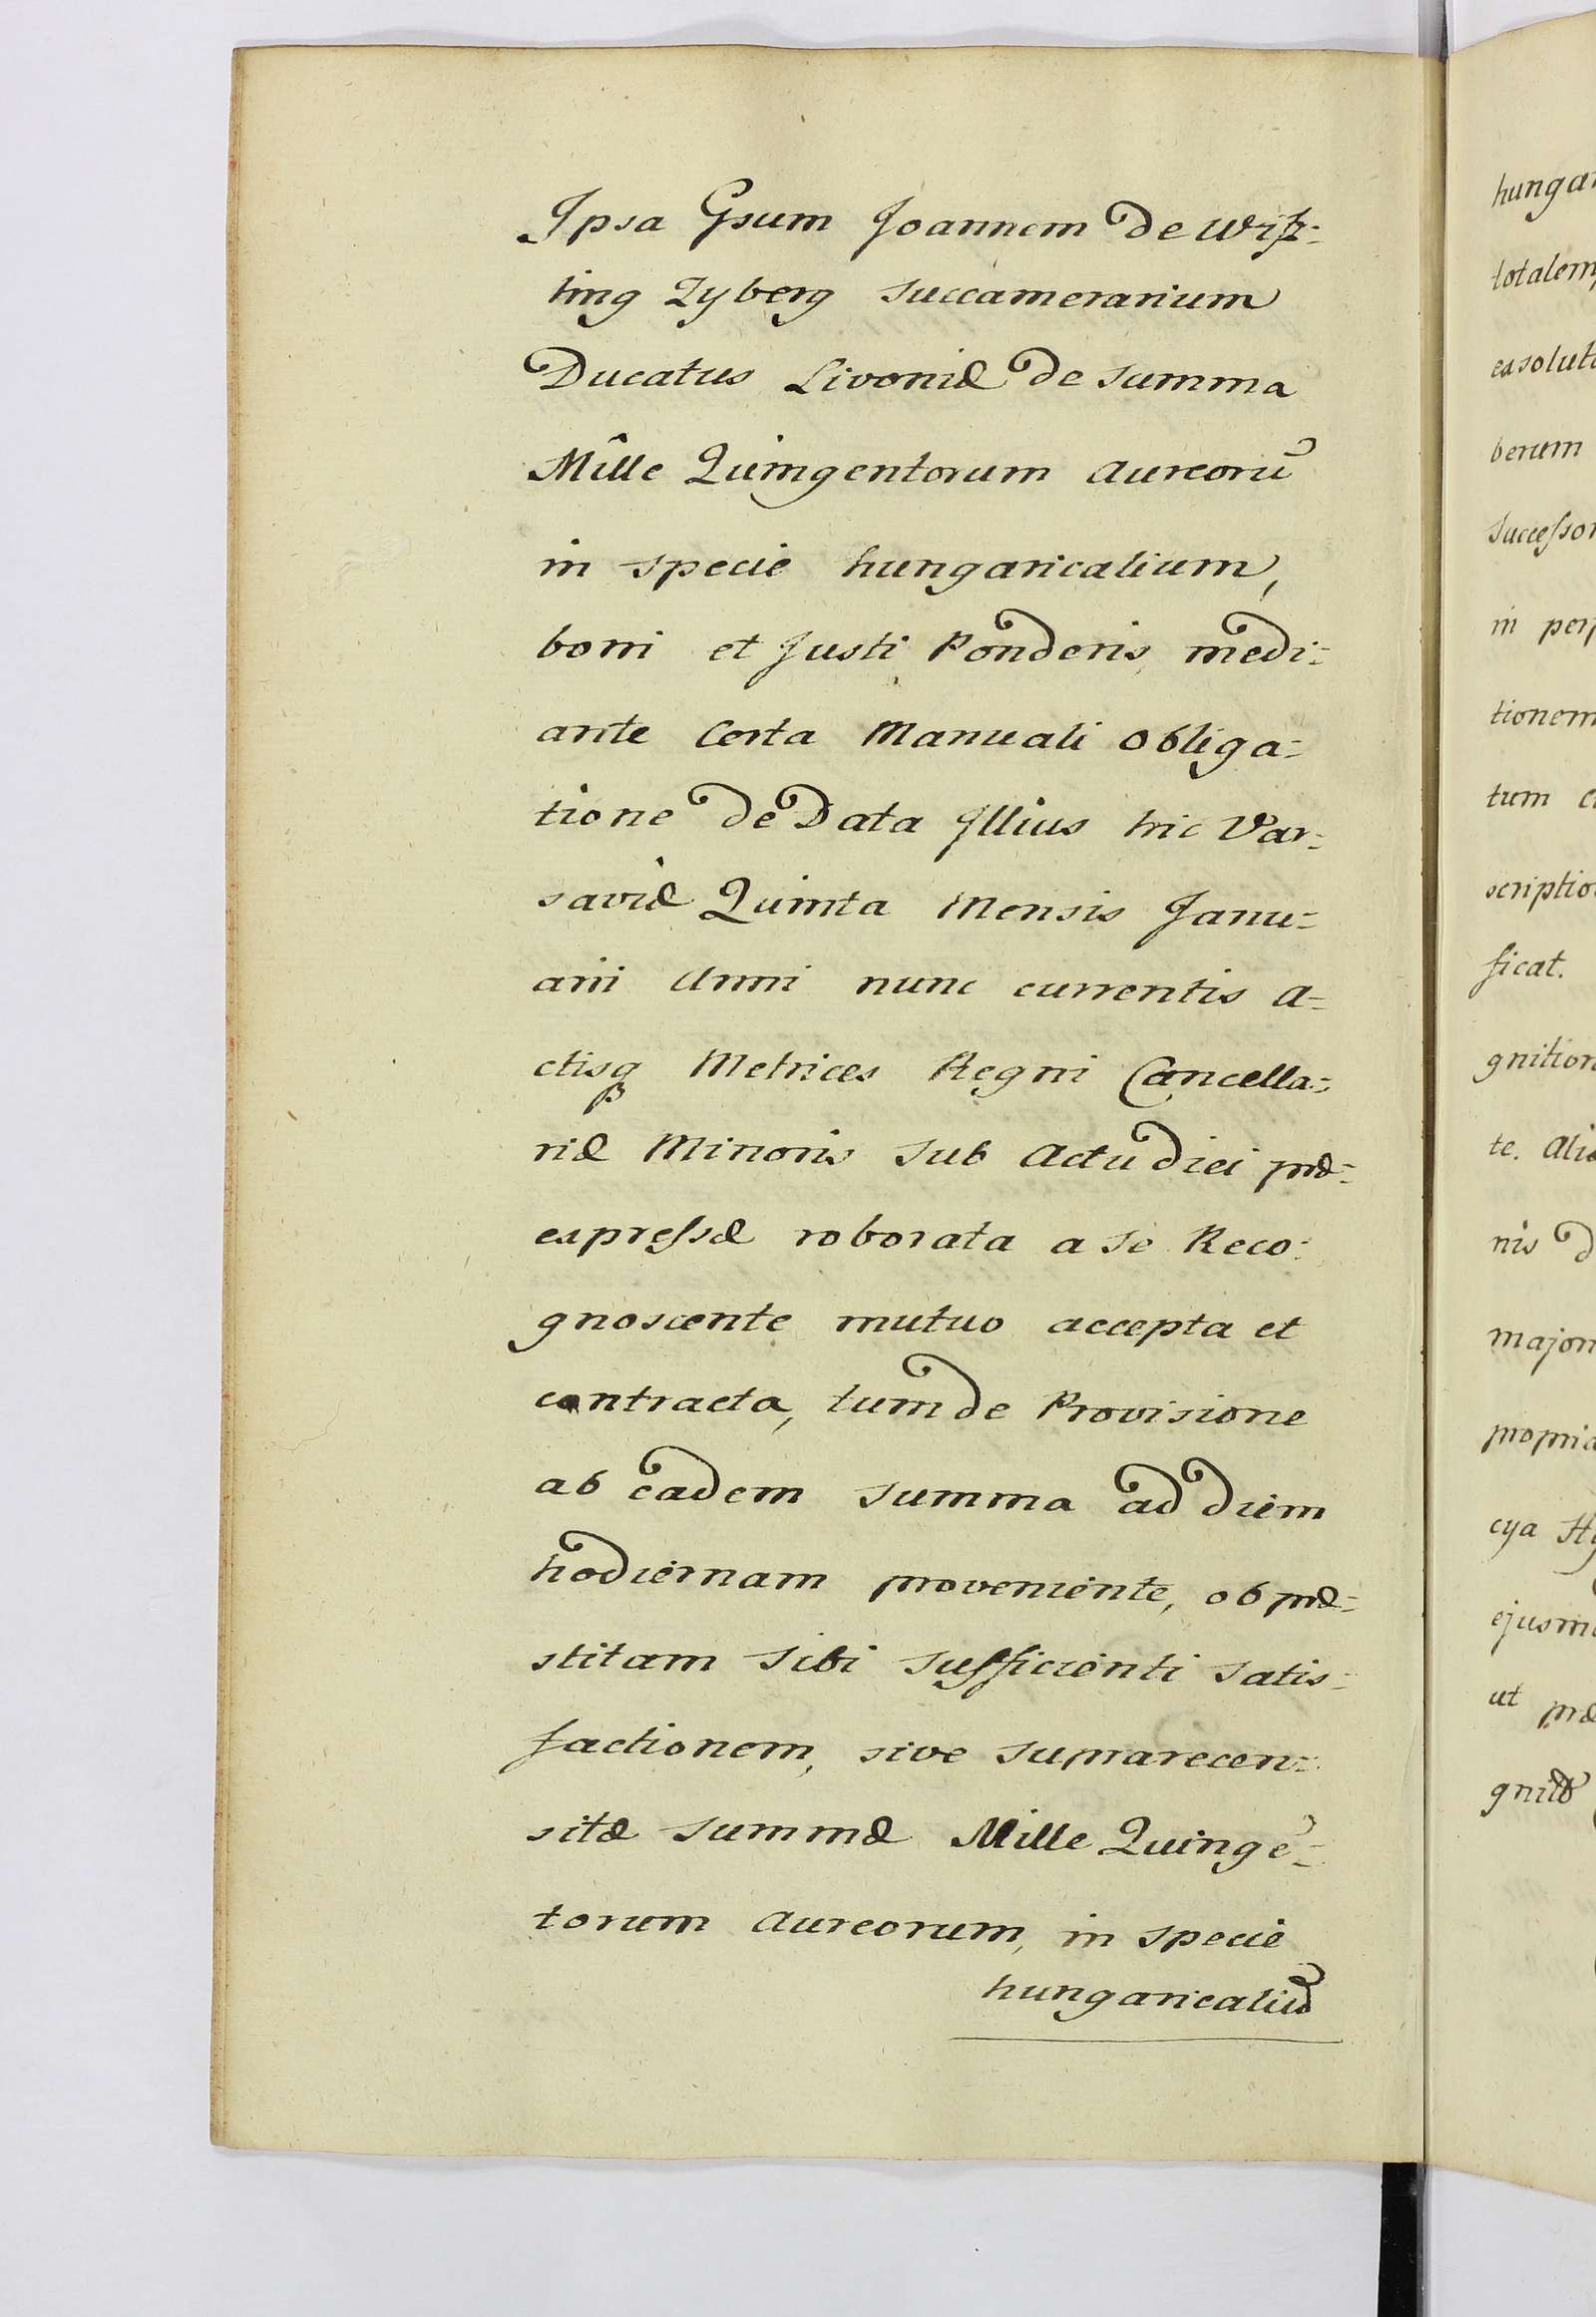 Ipsa Gsum Joannem de Wiß=
ting Zyberg Succamerarium
Ducatus Livoniæ de Summa
Mille Quingentorum aureorū
in specie hungaricalium,
boni et Justi Ponderis, medi=
ante Certa Manuali Obliga=
tione de Data Illius hic Var=
saviæ Quinta Mensis Janu=
arii Anni nunc currentis a=
ctisq Metrices Regni Cancella=
riæ Minoris sub Actu diei præ=
expressæ roborata a se Reco=
gnoscente mutuo accepta et
contracta, tum de Provisione
ab eadem summa ad diem
hodiernam proveniente, ob præ=
stitam sibi sufficienti satis=
factionem, sive suprarecen=
sitæ summæ Mille Quingē=
torum Aureorum, in specie
hungaricaliū
hungar
totalem
easolut
berum
Successor
in perp
tionem
tum
scriptio
ficat.
gnition
te. Alio
nis d
major
propria
cya Hy
ejusm
ut præ